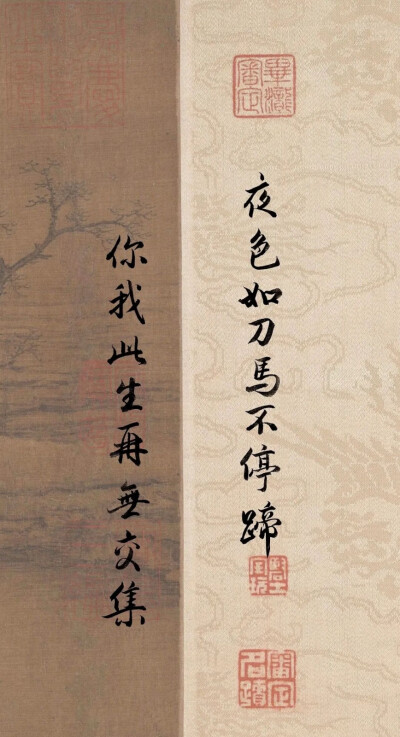 夜色如刀馬不停蹄
你我此生再無交集
畢瀧審定